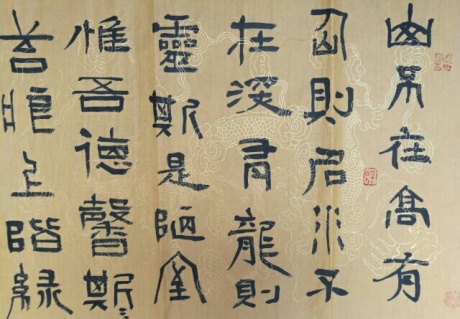 山不在高有
仚則名水不
在深有龍則
靈斯是陋室
惟吾德馨斯
苔痕上階緑